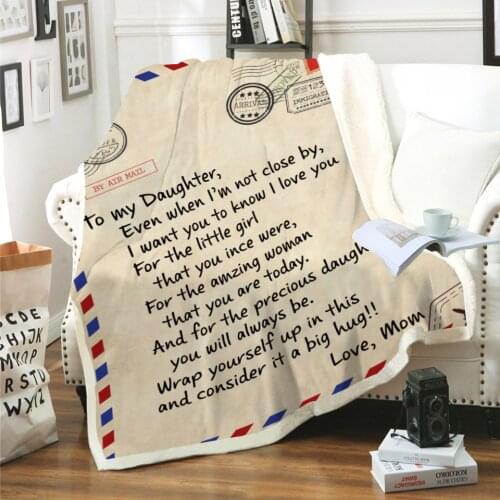 CENTURY
ARRIVAL
IMMIGRATION
BY AIR MAIL
To my Daughter,
Even when I'm not close by,
I want you to know I love you
For the little girl
that you ince were,
For the amzing woman
that you are today.
And for the precious daugh
you will always be.
Wrap yourself up in this
and consider it a big hug!!
Love, Mom